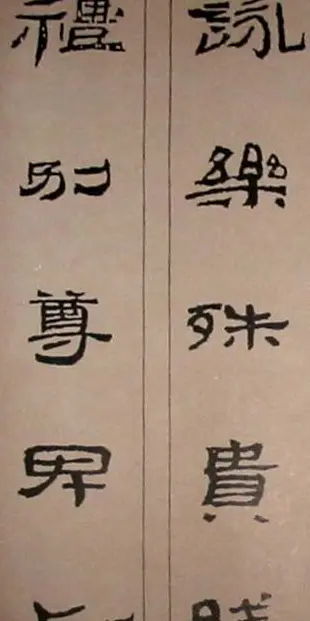 詠樂殊貴
禮別尊卑